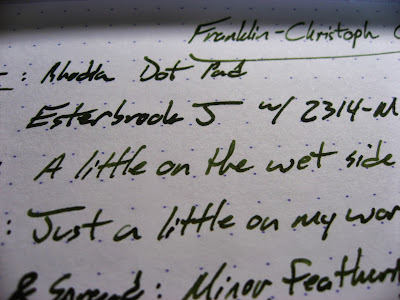 Franklin-Christoph
: Rhodia Dot Pad
Esterbrook J w/ 2314-M
A little on the wet side
: Just a little on my
& Spread: Minor